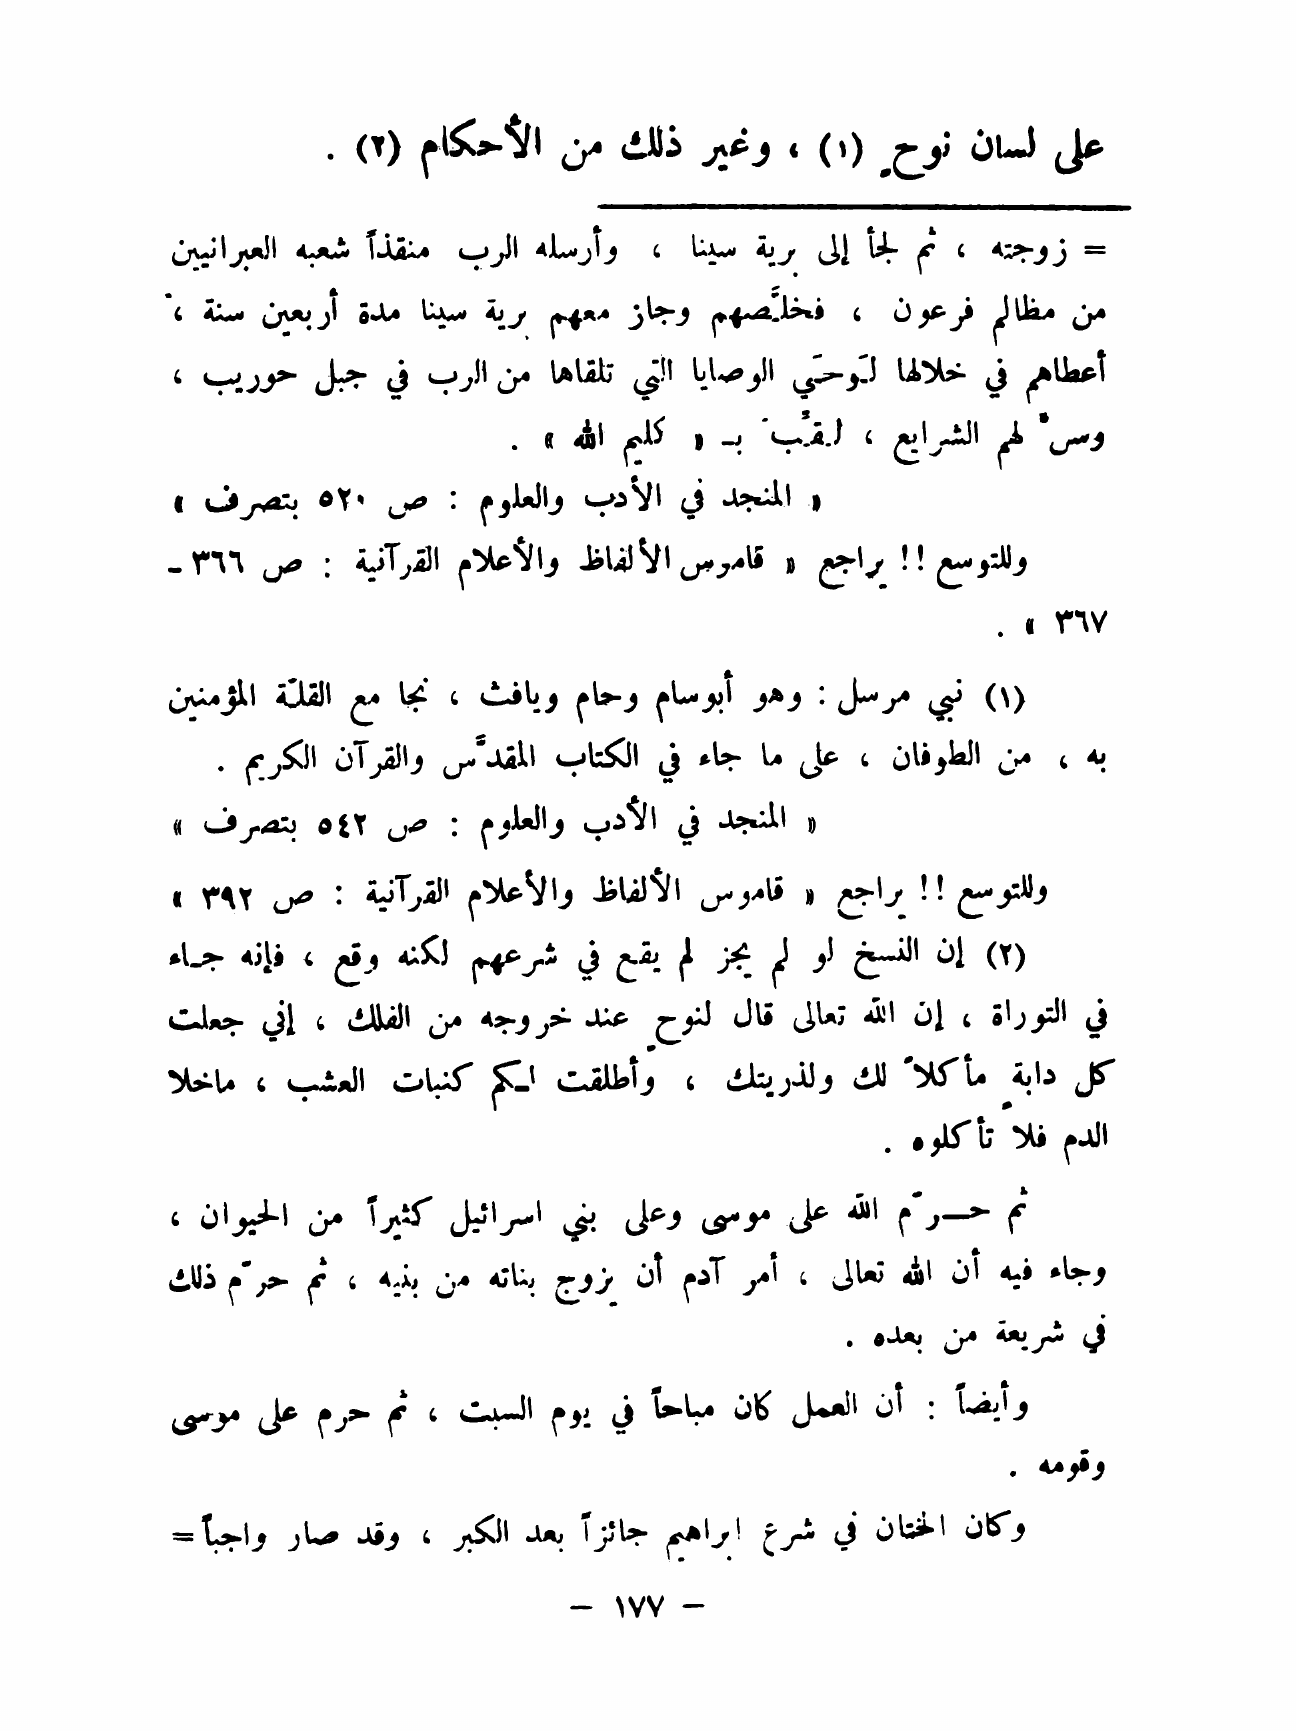 على لسان نوحٍ (١) ، وغير ذلك من الأحكام (٢) .
= زوجته ، ثم لجأ إلى برية سينا ، وأرسله الرب منقذاً شعبه العبرانيين
من مظالم فرعون ، فخلَّصهم وجاز معهم برية سينا مدة أربعين سنة ،
أعطاهم في خلالها لَوحَي الوصايا التي تلقاها من الرب في جبل حوريب ،
وسن لهم الشرايع ، لقِّب بـ « كليم الله » .
« المنجد في الأدب والعلوم : ص ٥٢٠ بتصرف »
وللتوسع !! يراجع « قاموس الألفاظ والأعلام القرآنية : ص ٣٦٦ -
٣٦٧ » .
(١) نبي مرسل : وهو أبوسام وحام ويافث ، نجا مع القلّة المؤمنين
به ، من الطوفان ، على ما جاء في الكتاب المقدَّس والقرآن الكريم .
« المنجد في الأدب والعلوم : ص ٥٤٢ بتصرف »
وللتوسع !! يراجع « قاموس الألفاظ والأعلام القرآنية : ص ٣٩٢ »
(٢) إن النسخ لو لم يجز لم يقع في شرعهم لكنه وقع ، فإنه جـاء
في التوراة ، إن الله تعالى قال لنوحٍ عند خروجه من الفلك ، إني جعلت
كل دابةٍ مأكلاً لك ولذريتك ، وأطلقت لـكم كنبات العشب ، ماخلا
الدم فلا تأكلوه .
ثم حـــرّم الله على موسى وعلى بني اسرائيل كثيراً من الحيوان ،
وجاء فيه أن الله تعالى ، أمر آدم أن يزوج بناته من بنيه ، ثم حرّم ذلك
في شريعة من بعده .
وأيضاً : أن العمل كان مباحاً في يوم السبت ، ثم حرم على موسى
وقومه .
وكان الختان في شرع ابراهيم جائزاً بعد الكبر ، وقد صار واجباً =
– ١٧٧ –